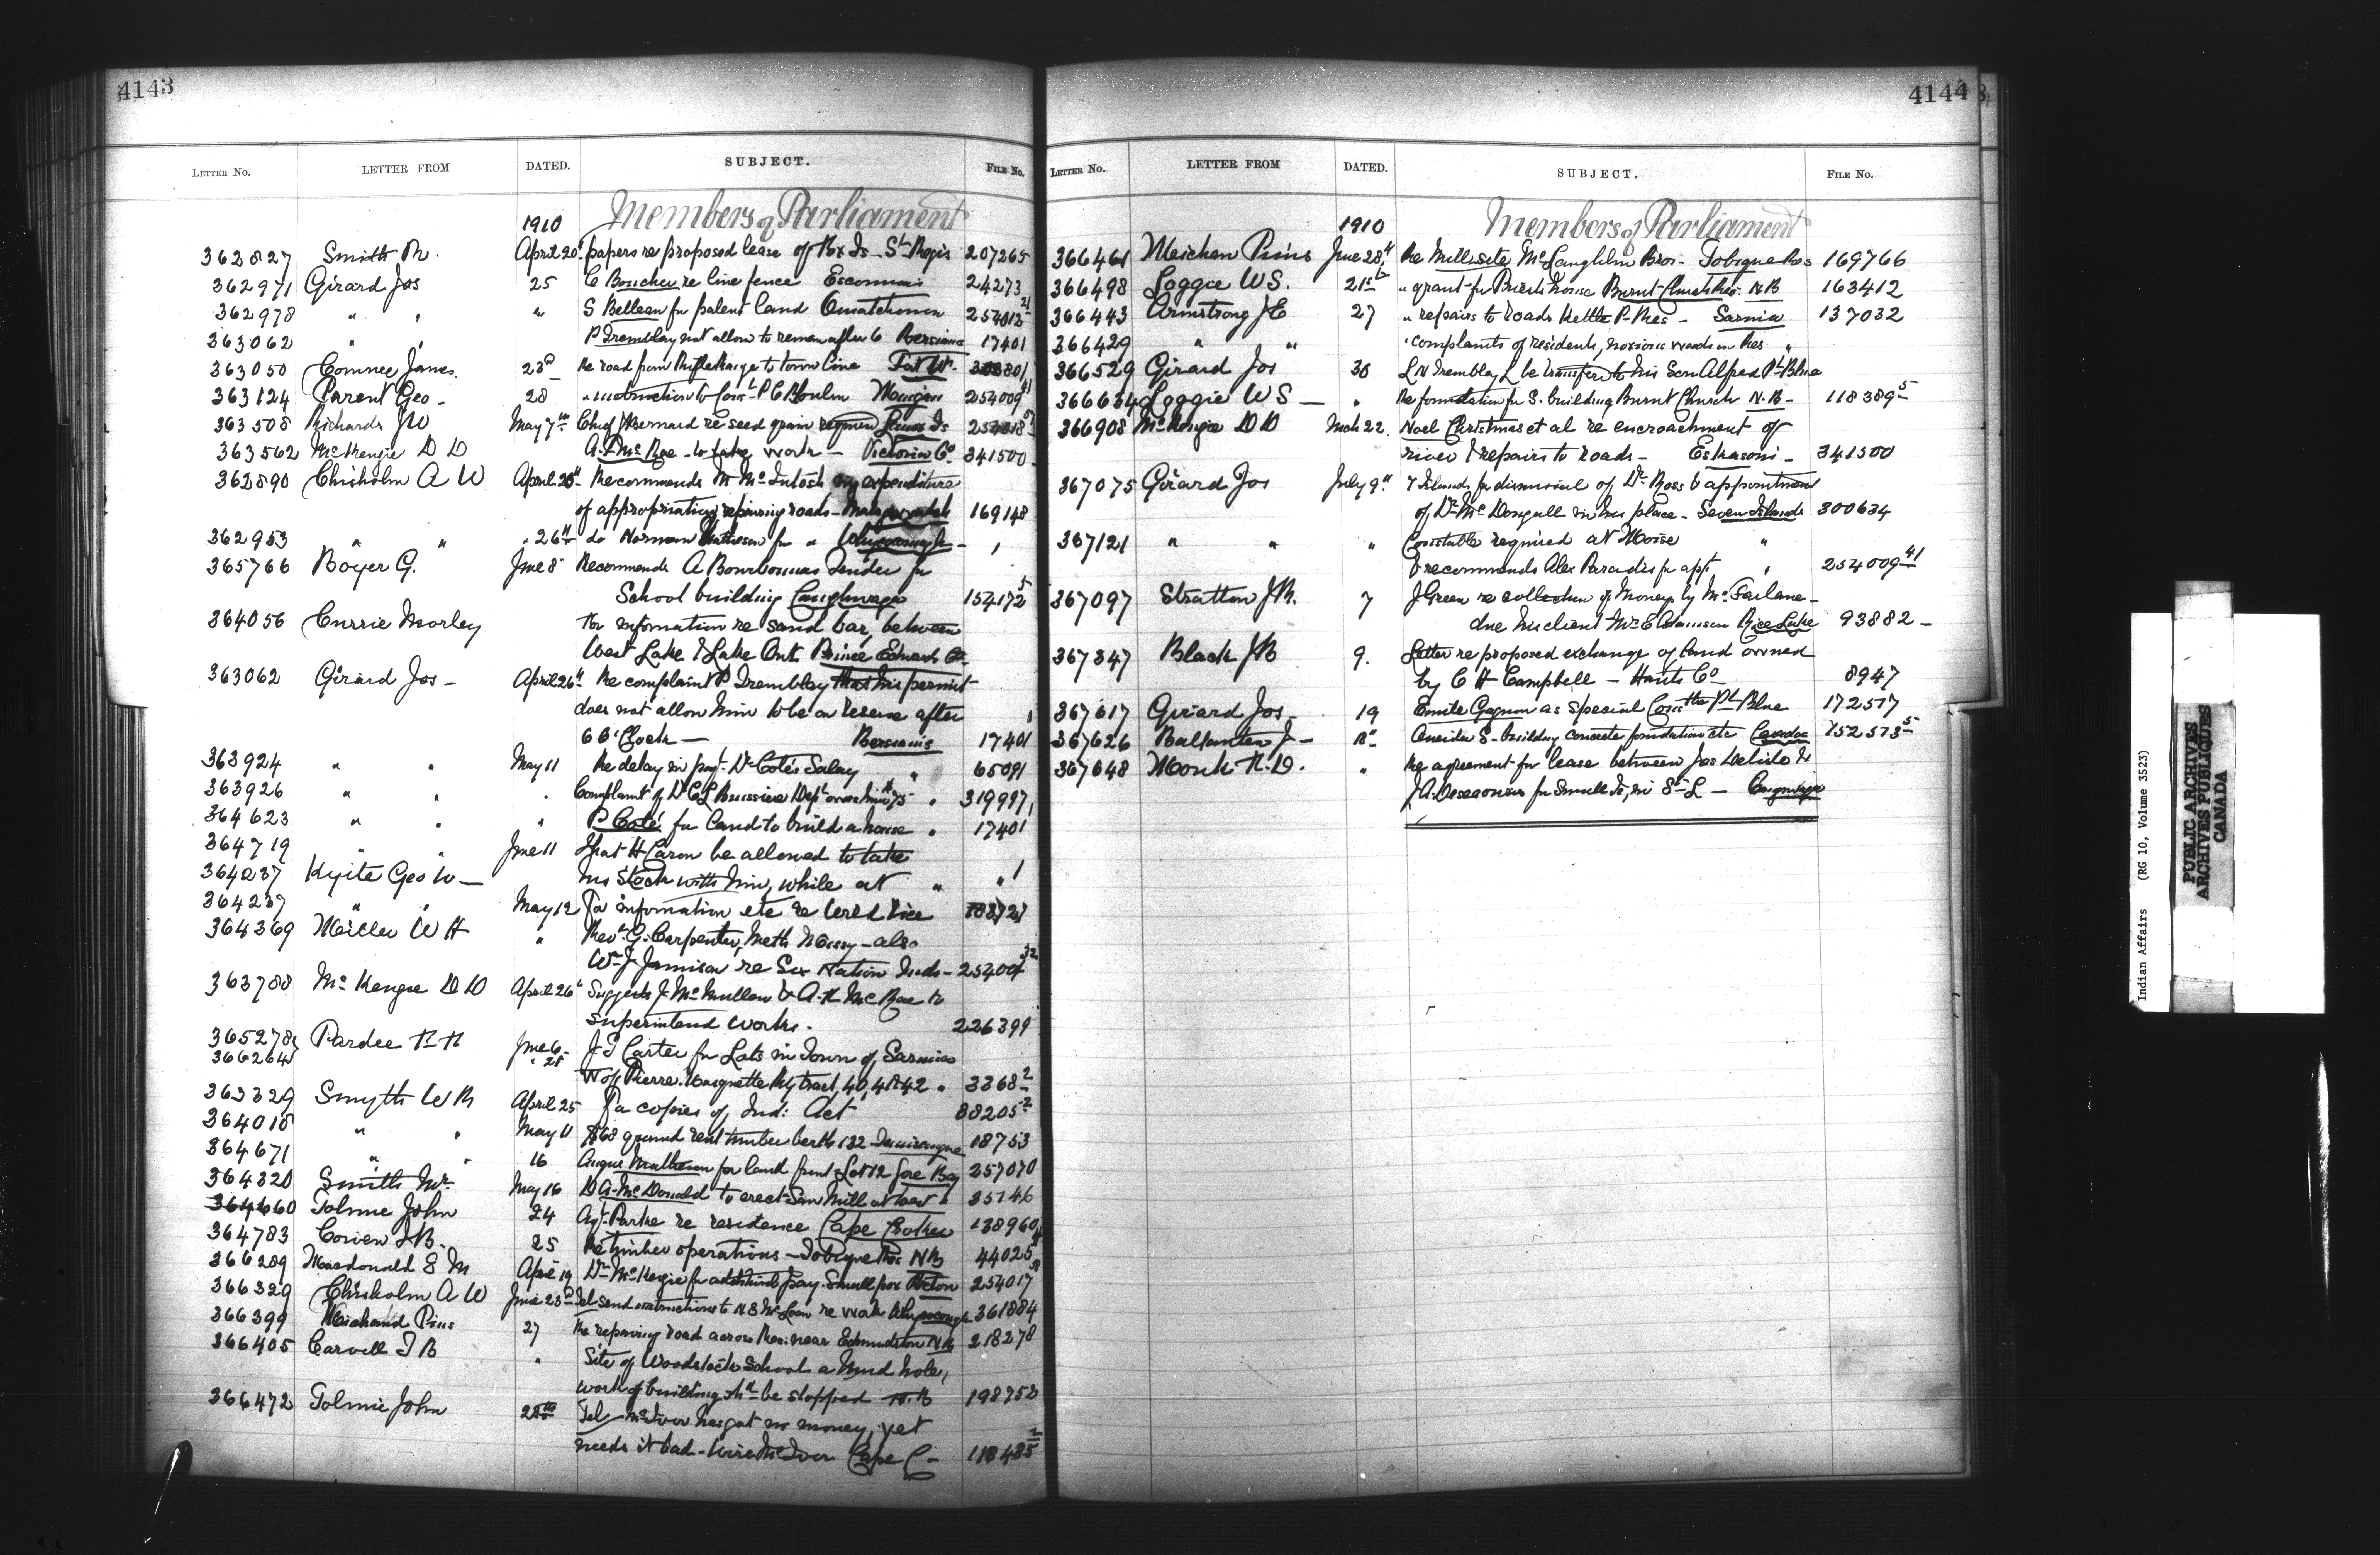 4143
LETTER No. LETTER FROM DATED. SUBJECT. FILE No.
1910 Members of Parliament
362827 Smith R. April 20 papers re proposed lease of Is. St Regis 207265
362971 Girard Jos 25 C Boucher re line fence Escoumains 24273
362978 " " " S Belleau for patent land Ouiatchouan 254012
363062 " " P Tremblay not allow to remain after 6 Bersimis 17401
363050 Conmee James 23rd Re road from Rifle Range to town line Fort Wm.
363124 Parent Geo. 28 " instruction to Const P C Moulin 254009 41
363508 Richards JW May 7th Chief Bernard re seed grain Lennox Is
363562 McKenzie D D A. D McRae to take work - Victoria Co 341500
362890 Chisholm A W April 25 Recommends M McIntosh expenditure
of appropriation repairing roads - 169148
362953 " " " 26th do Norman Matheson for " Whycocomagh - "
365766 Boyer G. June 8 Recommends A Bourbonnais Tender for
School building Caughnawaga 154172 5
364056 Currie Morley For information re sand bar, between
West Lake & Lake Ont. Prince Edward Co.
363062 Girard Jos - April 26th Re complaint P Tremblay that his permit
does not allow him to be on reserve after
6 O'Clock — Bersimis 17401
363924 " " May 11 Re delay in payt. Dr Coté's Salary " 65091
363926 " " " Complaint of Dr C L Bussiere Dept owes him $75 " 319997
364623 " " " P Coté for land to build a house " 17401
364719 " " June 11 that H Caron be allowed to take
364237 Kyte Geo W — his Stock with him, while at " "
364237 " " May 12 For information etc re
364369 Miller W H " Revd G. Carpenter, Meth Missy - also
Wm J Jamison re Six Nation Inds - 254004 32
363788 McKenzie D D April 26th Suggests J. McMullen & A. H McRae to
superintend works. 226399
365278 Pardee F F June 6 J T Carter for Lots in Town of Sarnia
366264 " 28 W of Pierre Marquette Ry tract, 40, 41 & 42 " 3368 2
363329 Smyth W R April 25 For copies of Ind: Act 88205 2
364018 " " May 11 $68 ground rent timber berth 132 18753
364671 " " 16 Angus Matheson for land front Lot 12 Gore Bay 257070
364320 Smith Wm May 16 D A. McDonald to erect Saw Mill at west " 35746
364660 Tolmie John 24 Agt. Parke re residence Cape Croker 138960
364783 25 Re timber operations - Tobique Res. NB 44025
366289 Macdonald E M April 19 Dr McKenzie for additional pay. Small pox Pictou 254017
366329 Chisholm A W June 23rd Tel send instructions to N S McLean re work Whycocomagh 361884
366399 Michaud Pius 27 Re repairing road across Res: near Edmundston NB 218278
366405 Carvell F B " Site of Woodstock School a Mud hole,
work of building shd be stopped N.B 198752
366472 Tolmie John 28th Tel - McIver has got no money, yet
needs it bad - Wire McIver Cape C - 118485
4144
LETTER No. LETTER FROM DATED. SUBJECT. FILE No.
1910 Members of Parliament
366461 Meichan Pius June 28th Re Millsite McLaughlin Bros - Tobique Res 169766
366498 Loggie W S. 21st " grant for Priests house Burnt Church Res. N B 163412
366443 Armstrong J E 27 " repairs to roads Kettle P. Res - Sarnia 137032
366429 " " " complaints of residents, noxious weeds on Res "
366529 Girard Jos 30 L N Tremblay L be transfered to his Son Alfred Pt Blue
366634 Loggie W S — " Re foundation for S. building Burnt Church N.B - 118389 5
366908 McKenzie D D Mch 22. Noel Christmas et al re encroachment of
river & repairs to roads - Eskasoni - 341500
367075 Girard Jos July 9th 7 Islands for dismissal of Dr Ross & appointment
of Dr McDougall in his place - Seven Islands 300634
367121 " " " Constable required at Moisie "
& recommends Alex Paradis for appt " 254009 41
367097 Stratton J R. 7 J Green re collection of Money by McFarlane -
due his client Mr E Adamson Rice Lake 93882 -
367347 Black J B 9. Letter re proposed exchange of land owned
by C H Campbell - Hants Co - 8947
367617 Girard Jos - 19 Emile Gagnon as special Constble Pt Blue 172517
367626 Ballantyne J — 18th Oneida S. building concrete foundation etc Caradoc 152573 5
367648 Monk F. D. " Re agreement for lease between Jas Delisle &
J. A. Descaries for Small Is, in St L — Caugnwaga
Indian Affairs (RG 10, Volume 3523)
PUBLIC ARCHIVES
ARCHIVES PUBLIQUES
CANADA